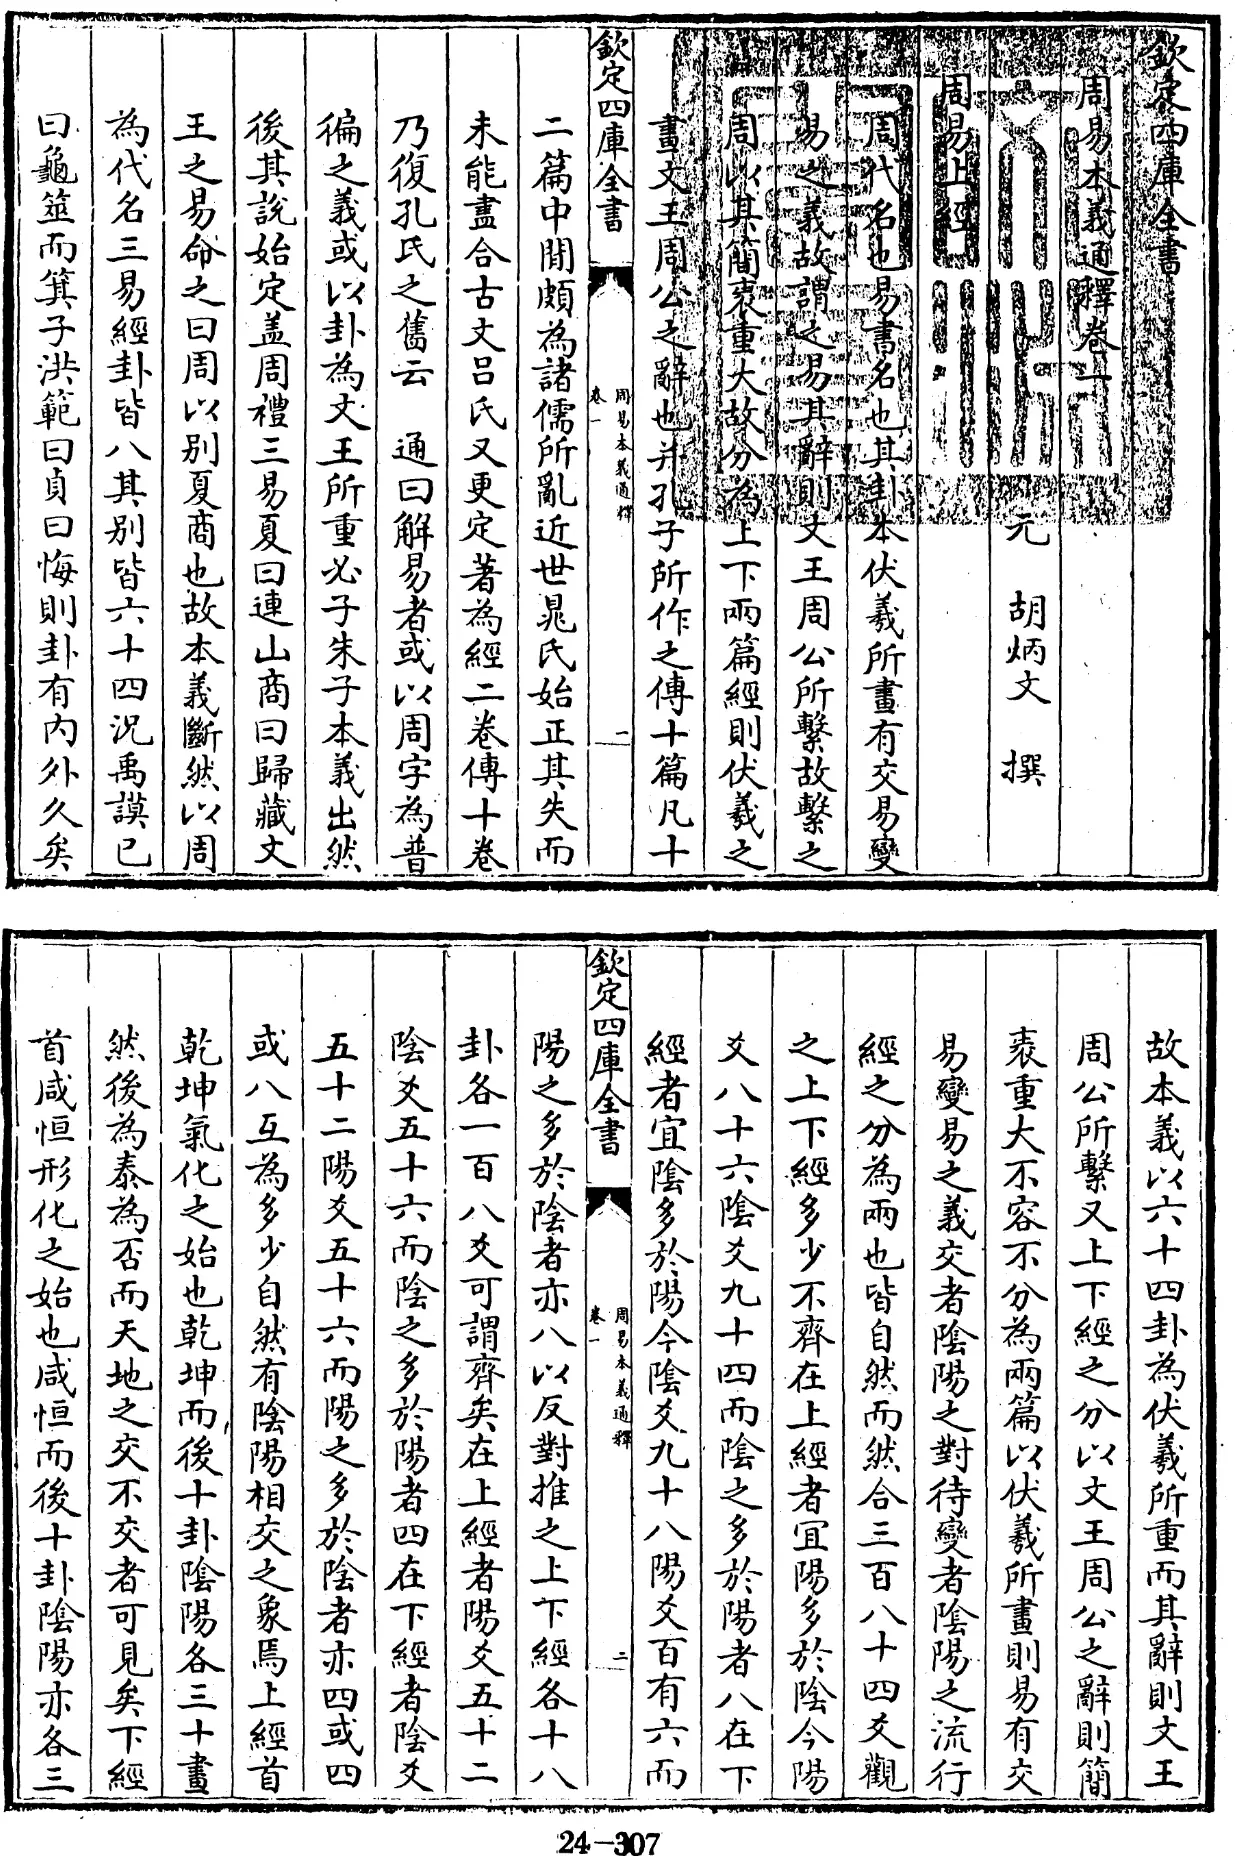 欽定四庫全書
周易本義通釋卷一
元 胡炳文 撰
周易上經
周代名也易書名也其卦本伏羲所畫有交易變
易之義故謂之易其辭則文王周公所繫故繫之
周以其簡袠重大故分為上下兩篇經則伏羲之
畫文王周公之辭也并孔子所作之傳十篇凡十
欽定四庫全書
周易本義通釋
卷一
一
二篇中間頗為諸儒所亂近世晁氏始正其失而
未能盡合古文吕氏又更定著為經二卷傳十卷
乃復孔氏之舊云 通曰解易者或以周字為普
徧之義或以卦為文王所重必子朱子本義出然
後其説始定盖周禮三易夏曰連山商曰歸藏文
王之易命之曰周以别夏商也故本義斷然以周
為代名三易經卦皆八其别皆六十四況禹謨已
曰龜筮而箕子洪範曰貞曰悔則卦有内外久矣
故本義以六十四卦為伏羲所重而其辭則文王
周公所繫又上下經之分以文王周公之辭則簡
袠重大不容不分為兩篇以伏羲所畫則易有交
易變易之義交者陰陽之對待變者陰陽之流行
經之分為兩也皆自然而然合三百八十四爻觀
之上下經多少不齊在上經者宜陽多於陰今陽
爻八十六陰爻九十四而陰之多於陽者八在下
經者宜陰多於陽今陰爻九十八陽爻百有六而
欽定四庫全書
周易本義通釋
卷一
二
陽之多於陰者亦八以反對推之上下經各十八
卦各一百八爻可謂齊矣在上經者陽爻五十二
陰爻五十六而陰之多於陽者四在下經者陰爻
五十二陽爻五十六而陽之多於陰者亦四或四
或八互為多少自然有陰陽相交之象焉上經首
乾坤氣化之始也乾坤而後十卦陰陽各三十畫
然後為泰為否而天地之交不交者可見矣下經
首咸恒形化之始也咸恒而後十卦陰陽亦各三
24-307